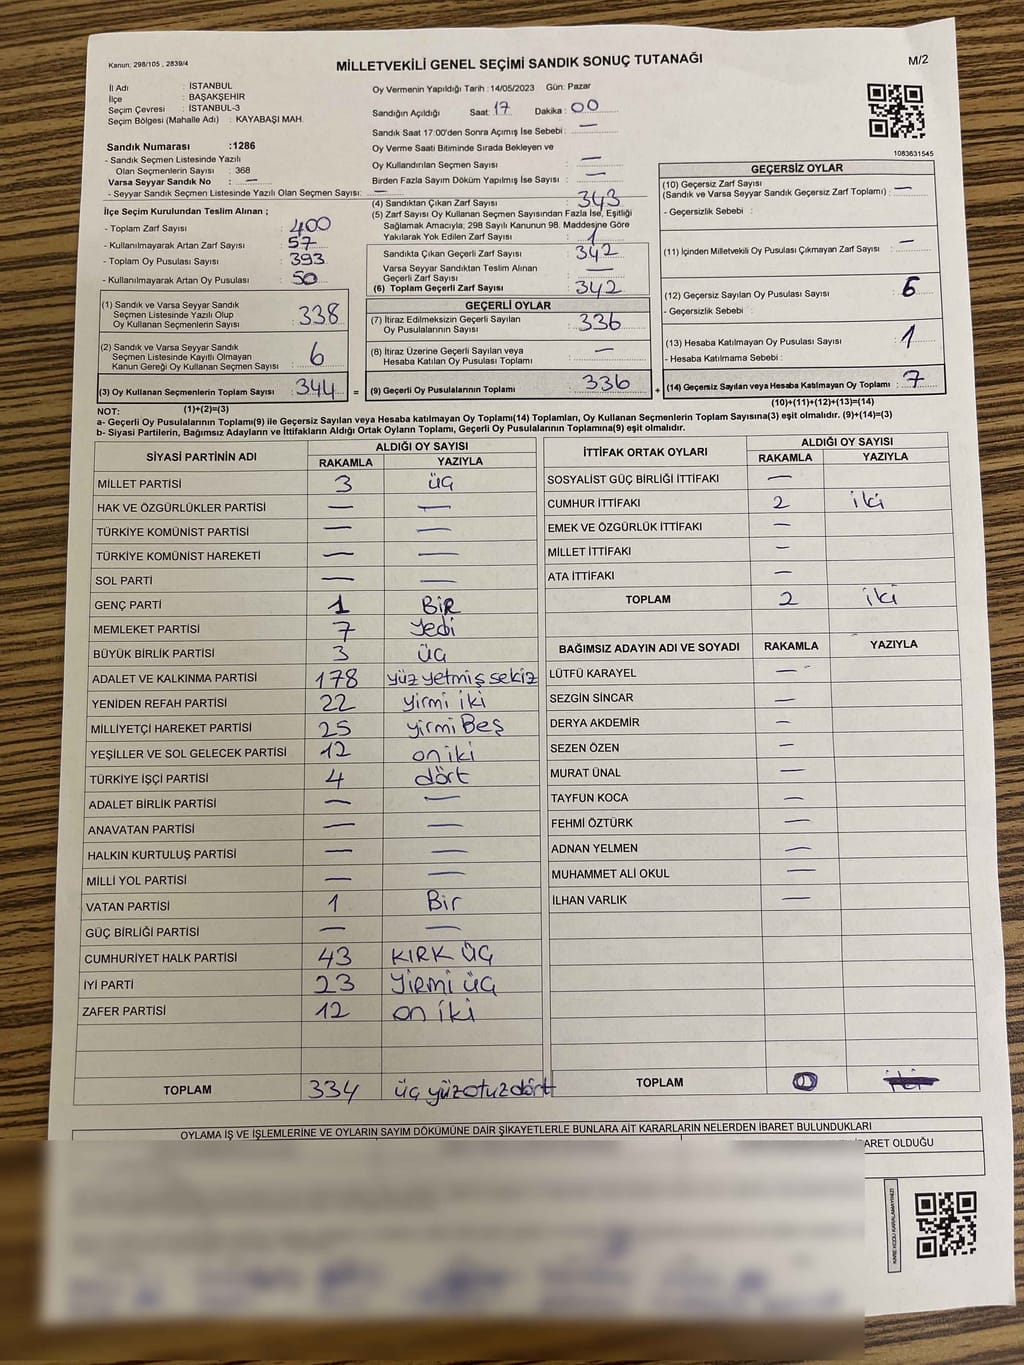 Kanun: 298/105 , 2839/4
MİLLETVEKİLİ GENEL SEÇİMİ SANDIK SONUÇ TUTANAĞI
M/2
İl Adı : İSTANBUL
İlçe : BAŞAKŞEHİR
Seçim Çevresi : İSTANBUL-3
Seçim Bölgesi (Mahalle Adı) : KAYABAŞI MAH.
Sandık Numarası :1286
- Sandık Seçmen Listesinde Yazılı
Olan Seçmenlerin Sayısı : 368
Varsa Seyyar Sandık No : —
- Seyyar Sandık Seçmen Listesinde Yazılı Olan Seçmen Sayısı: —
Oy Vermenin Yapıldığı Tarih : 14/05/2023 Gün: Pazar
Sandığın Açıldığı Saat: 17 Dakika : 00
Sandık Saat 17:00'den Sonra Açımış İse Sebebi : —
Oy Verme Saati Bitiminde Sırada Bekleyen ve
Oy Kullandırılan Seçmen Sayısı : —
Birden Fazla Sayım Döküm Yapılmış İse Sayısı : —
1083631545
İlçe Seçim Kurulundan Teslim Alınan ;
- Toplam Zarf Sayısı : 400
- Kullanılmayarak Artan Zarf Sayısı : 57
- Toplam Oy Pusulası Sayısı : 393
- Kullanılmayarak Artan Oy Pusulası : 50
(1) Sandık ve Varsa Seyyar Sandık
Seçmen Listesinde Yazılı Olup
Oy Kullanan Seçmenlerin Sayısı : 338
(2) Sandık ve Varsa Seyyar Sandık
Seçmen Listesinde Kayıtlı Olmayan
Kanun Gereği Oy Kullanan Seçmen Sayısı : 6
(3) Oy Kullanan Seçmenlerin Toplam Sayısı : 344 =
(4) Sandıktan Çıkan Zarf Sayısı : 343
(5) Zarf Sayısı Oy Kullanan Seçmen Sayısından Fazla İse, Eşitliği
Sağlamak Amacıyla; 298 Sayılı Kanunun 98. Maddesine Göre
Yakılarak Yok Edilen Zarf Sayısı : 1
Sandıkta Çıkan Geçerli Zarf Sayısı : 342
Varsa Seyyar Sandıktan Teslim Alınan
Geçerli Zarf Sayısı : —
(6) Toplam Geçerli Zarf Sayısı : 342
GEÇERLİ OYLAR
(7) İtiraz Edilmeksizin Geçerli Sayılan
Oy Pusulalarının Sayısı : 336
(8) İtiraz Üzerine Geçerli Sayılan veya
Hesaba Katılan Oy Pusulası Toplamı : —
(9) Geçerli Oy Pusulalarının Toplamı : 336 +
GEÇERSİZ OYLAR
(10) Geçersiz Zarf Sayısı
(Sandık ve Varsa Seyyar Sandık Geçersiz Zarf Toplamı) : —
- Geçersizlik Sebebi :
(11) İçinden Milletvekili Oy Pusulası Çıkmayan Zarf Sayısı : —
(12) Geçersiz Sayılan Oy Pusulası Sayısı : 6
- Geçersizlik Sebebi :
(13) Hesaba Katılmayan Oy Pusulası Sayısı : 1
- Hesaba Katılmama Sebebi :
(14) Geçersiz Sayılan veya Hesaba Katılmayan Oy Toplamı : 7
NOT: (1)+(2)=(3) (10)+(11)+(12)+(13)=(14)
a- Geçerli Oy Pusulalarının Toplamı(9) ile Geçersiz Sayılan veya Hesaba katılmayan Oy Toplamı(14) Toplamları, Oy Kullanan Seçmenlerin Toplam Sayısına(3) eşit olmalıdır. (9)+(14)=(3)
b- Siyasi Partilerin, Bağımsız Adayların ve İttifakların Aldığı Ortak Oyların Toplamı, Geçerli Oy Pusulalarının Toplamına(9) eşit olmalıdır.
SİYASİ PARTİNİN ADI ALDIĞI OY SAYISI
RAKAMLA YAZIYLA
MİLLET PARTİSİ 3 üç
HAK VE ÖZGÜRLÜKLER PARTİSİ — —
TÜRKİYE KOMÜNİST PARTİSİ — —
TÜRKİYE KOMÜNİST HAREKETİ — —
SOL PARTİ — —
GENÇ PARTİ 1 BİR
MEMLEKET PARTİSİ 7 Yedi
BÜYÜK BİRLİK PARTİSİ 3 üç
ADALET VE KALKINMA PARTİSİ 178 yüz yetmiş sekiz
YENİDEN REFAH PARTİSİ 22 yirmi iki
MİLLİYETÇİ HAREKET PARTİSİ 25 yirmi Beş
YEŞİLLER VE SOL GELECEK PARTİSİ 12 on iki
TÜRKİYE İŞÇİ PARTİSİ 4 dört
ADALET BİRLİK PARTİSİ — —
ANAVATAN PARTİSİ — —
HALKIN KURTULUŞ PARTİSİ — —
MİLLİ YOL PARTİSİ — —
VATAN PARTİSİ 1 Bir
GÜÇ BİRLİĞİ PARTİSİ — —
CUMHURİYET HALK PARTİSİ 43 KIRK ÜÇ
İYİ PARTİ 23 YİRMİ üç
ZAFER PARTİSİ 12 on iki
TOPLAM 334 üç yüz otuz dört
İTTİFAK ORTAK OYLARI ALDIĞI OY SAYISI
RAKAMLA YAZIYLA
SOSYALİST GÜÇ BİRLİĞİ İTTİFAKI —
CUMHUR İTTİFAKI 2 iki
EMEK VE ÖZGÜRLÜK İTTİFAKI —
MİLLET İTTİFAKI —
ATA İTTİFAKI —
TOPLAM 2 iki
BAĞIMSIZ ADAYIN ADI VE SOYADI RAKAMLA YAZIYLA
LÜTFÜ KARAYEL —
SEZGİN SİNCAR —
DERYA AKDEMİR —
SEZEN ÖZEN —
MURAT ÜNAL —
TAYFUN KOCA —
FEHMİ ÖZTÜRK —
ADNAN YELMEN —
MUHAMMET ALİ OKUL —
İLHAN VARLIK —
TOPLAM 0
OYLAMA İŞ VE İŞLEMLERİNE VE OYLARIN SAYIM DÖKÜMÜNE DAİR ŞİKAYETLERLE BUNLARA AİT KARARLARIN NELERDEN İBARET BULUNDUKLARI
BARET OLDUĞU
KARE KODU KARALAMAYINIZ!